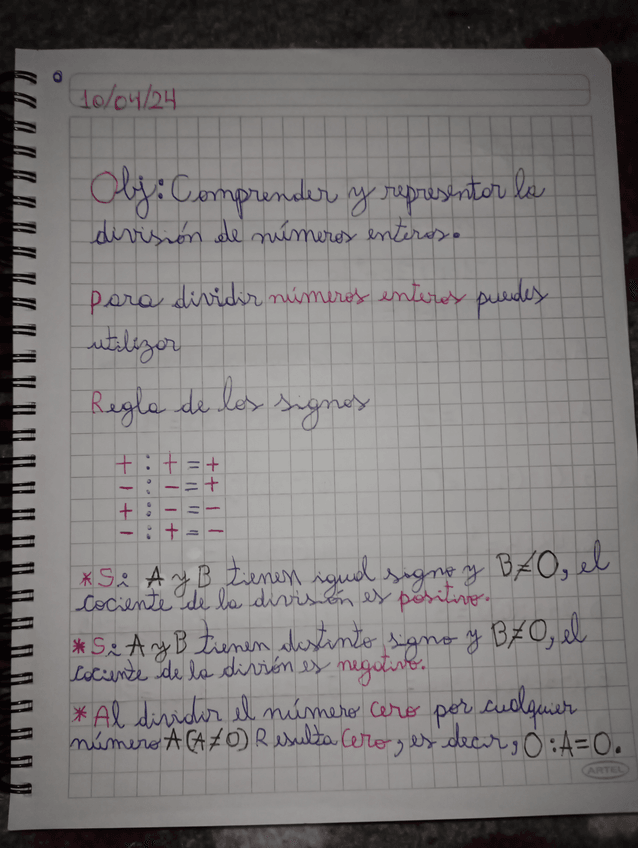 10/04/24
Obj: Comprender y representar la
división de números enteros.
Para dividir números enteros puedes
utilizar
Regla de los signos
+ : + = +
- : - = +
+ : - = -
- : + = -
*Si A y B tienen igual signo y B≠0, el
cociente de la división es positivo.
*Si A y B tienen distinto signo y B≠0, el
cociente de la divión es negativo.
*Al dividir el número cero por cualquier
número A (A≠0) Resulta cero, es decir, 0:A=0.
ARTEL